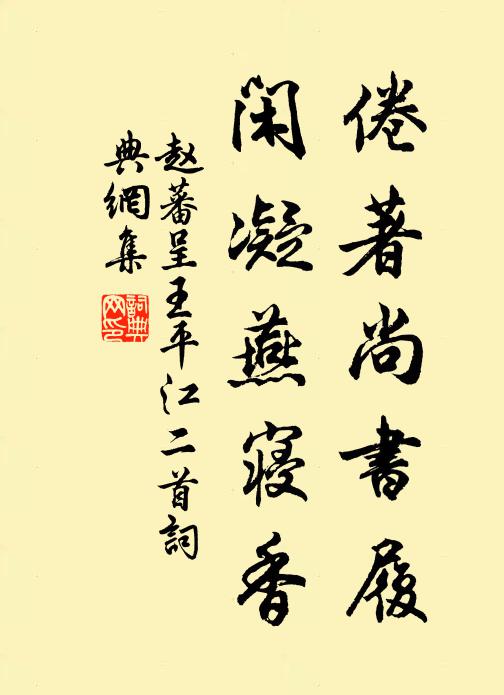 倦著尚書履
閑凝燕寢香
赵蕃呈王平江二首詞
典網集
詞典網印